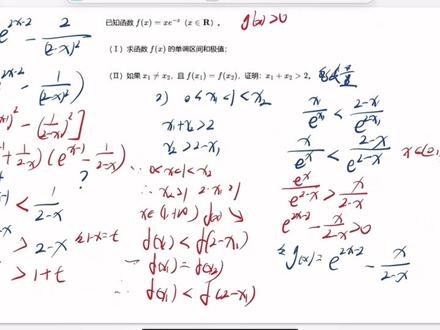 已知函数 f(x) = xe^{-x} (x ∈ R).
(Ⅰ) 求函数 f(x) 的单调区间和极值;
(Ⅱ) 如果 x₁ ≠ x₂, 且 f(x₁) = f(x₂), 证明: x₁ + x₂ > 2.
e^{2x-2} - 2/(2-x)²
1/(2-x)²
- (1/(2-x))²]
+ 1/(2-x)) (e^{x-1} - 1/(2-x))
?
< 1/(2-x)
> 2-x 令1-x=t
> 1+t
2) 0<x₁<1<x₂
x₁+x₂>2
x₂>2-x₁
∵ 0<x₁<1<x₂
∴ x₂>1 2-x₁>1
x∈(1,+∞) f(x)↘
f(x₂)<f(2-x₁)
∵ f(x₁)=f(x₂)
∴ f(x₁)<f(2-x₁)
g(x)>0
x₁/e^{x₁} < (2-x₁)/e^{2-x₁}
x/e^x < (2-x)/e^{2-x}
e^x/e^{2-x} > x/(2-x)
e^{2x-2} - x/(2-x) >0
令 g(x)= e^{2x-2} - x/(2-x)